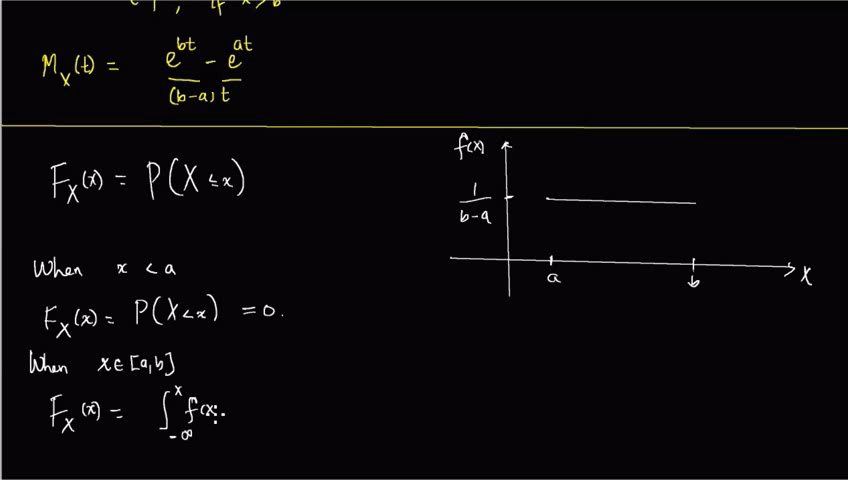 if x > b
M_X(t) = (e^{bt} - e^{at}) / ((b-a) t)
F_X(x) = P(X ≤ x)
When x < a
F_X(x) = P(X < x) = 0.
When x ∈ [a,b]
F_X(x) = ∫_{-∞}^{x} f(x)
f(x)
1/(b-a)
a
b
X